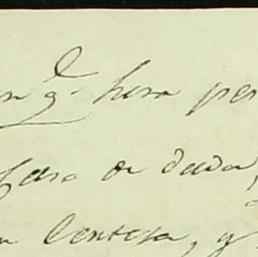 q.e hera per
caso de duda,
Certeza, y